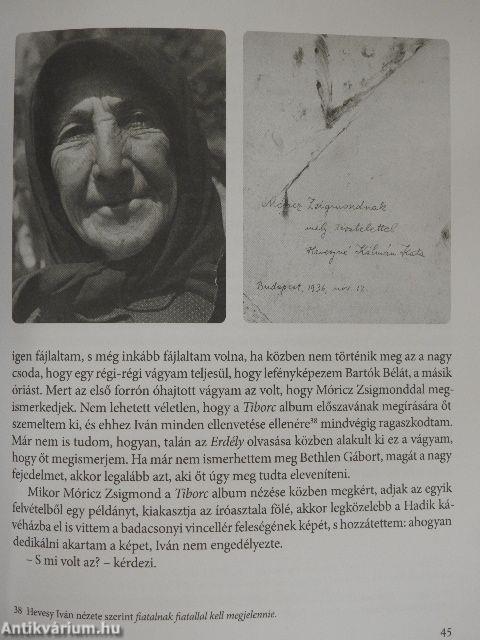 Móricz Zsigmondnak
mély tisztelettel
Hevesyné Kálmán Kata
Budapest, 1936, nov. 12.
igen fájlaltam, s még inkább fájlaltam volna, ha közben nem történik meg az a nagy
csoda, hogy egy régi-régi vágyam teljesül, hogy lefényképezem Bartók Bélát, a másik
óriást. Mert az első forrón óhajtott vágyam az volt, hogy Móricz Zsigmonddal meg-
ismerkedjek. Nem lehetett véletlen, hogy a Tiborc album előszavának megírására őt
szemeltem ki, és ehhez Iván minden ellenvetése ellenére³⁸ mindvégig ragaszkodtam.
Már nem is tudom, hogyan, talán az Erdély olvasása közben alakult ki ez a vágyam,
hogy őt megismerjem. Ha már nem ismerhettem meg Bethlen Gábort, magát a nagy
fejedelmet, akkor legalább azt, aki őt úgy meg tudta eleveníteni.
Mikor Móricz Zsigmond a Tiborc album nézése közben megkért, adjak az egyik
felvételből egy példányt, kiakasztja az íróasztala fölé, akkor legközelebb a Hadik ká-
véházba el is vittem a badacsonyi vincellér feleségének képét, s hozzátettem: ahogyan
dedikálni akartam a képet, Iván nem engedélyezte.
– S mi volt az? – kérdezi.
38 Hevesy Iván nézete szerint fiatalnak fiatallal kell megjelennie.
45
Antikvárium.hu